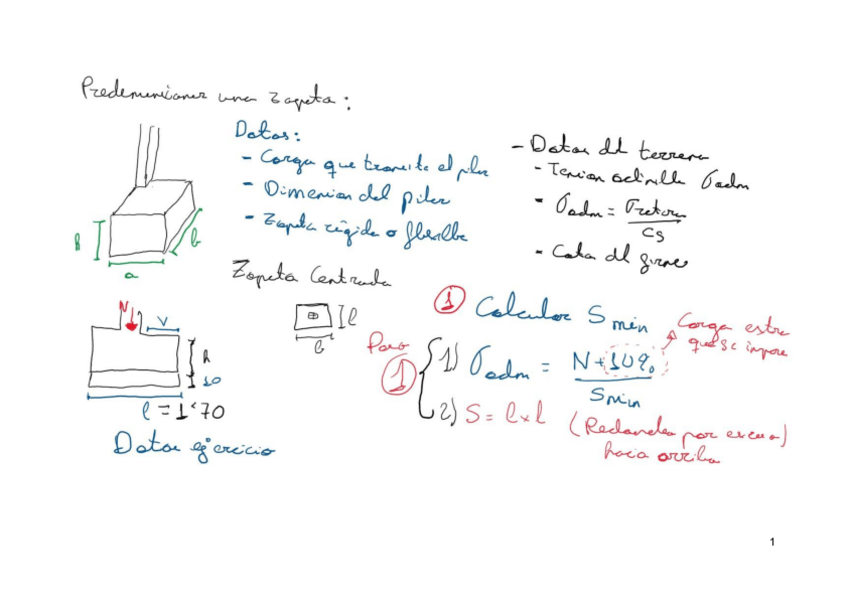 Predimensionar una zapeta:
Datos:
- Carga que transmite el pilar
- Dimension del pilar
- Zapeta rígida o flexible
- Datos del terreno
- Tension admisible σadm
- σadm = σrotura / Cs
- Cota del firme
h
b
a
Zapeta Centrada
N
V
h
10
l = 1'70
Datos ejercicio
l
b
① Calcular Smin
Carga extra
que se impone
Paso
①
1) σadm = N+10% / Smin
2) S = l x l (Redondeo por exceso)
hacia arriba
1